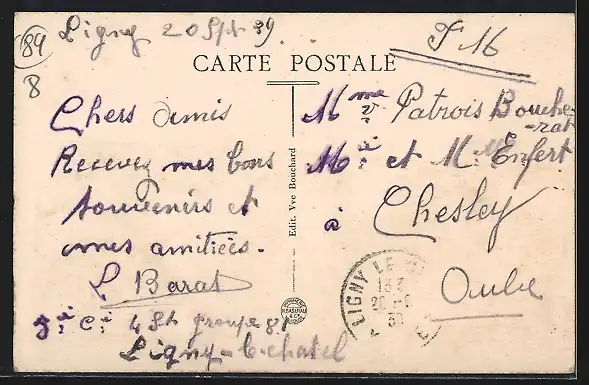 89
8
Ligny 20 Sept 39
F M
CARTE POSTALE
Chers Amis
Recevez mes bons
souvenirs et
mes amitiées.
L Barat
4 St groupe 84
Ligny-le-chatel
Edit. Vve Bouchard
Mme Vve Patrois Bouche
-rat
Mr et Mme Enfert
à
Chesley
Aube
LIGNY LE